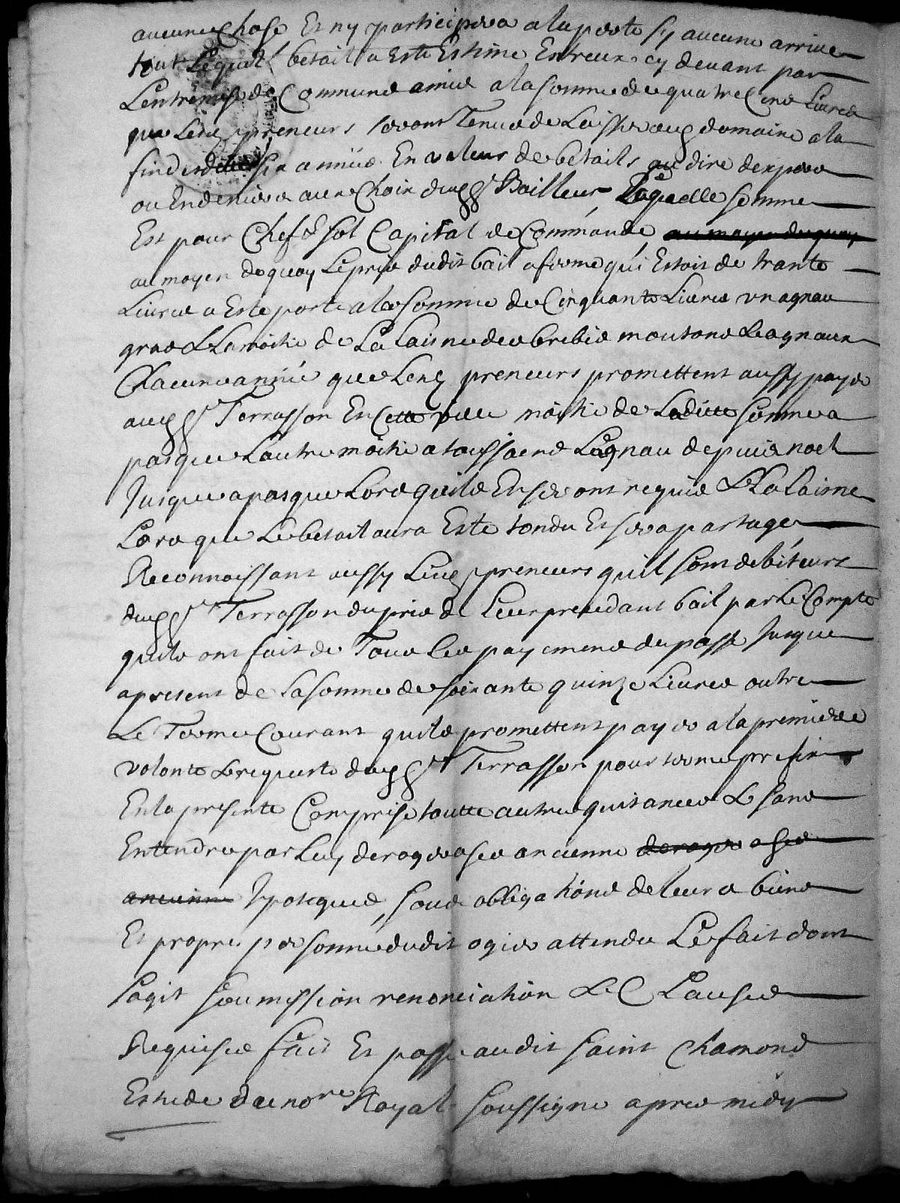 aucune Chose Et ny participera a la perte sy aucune arrive
tout Lequel betail a Este Estimé Entreux cy devant par
Lentremise de Commune amie a la somme de quatre Cent Livres
que Lesd preneurs seront Tenus de Laisser aud domaine a la
fin desdittes six année En valeur de betails au dire dexpers
ou En deniers au Choix dud sr Bailleur Laquelle somme
Est pour Chef & sol Capital de Commande au moyen dequoy
au moyen dequoy Le prix dudit bail a ferme qui Estoit de trante
Livres a Este porté a la somme de Cinquante Livres un agnau
gras & La moitié de La Laisne des brebis moutons & agnaux
Chacune année que Lesd preneurs promettent aussy payer
aud sr Terrasson En Cette ville moitié de Laditte somme a
pasque L'autre moitié a toussaint Lagnau depuis noel
Jusque a pasque Lors quils En seront requis & La Laisne
Lors que Le betail aura Este tondu Et sera partagé
Reconnaissant aussy Lesd preneurs quil sont debiteurs
dud sr Terrasson du prix de Leur precedant bail par Le Compte
quils ont fait de Tous Les payements du passé Jusque
a present de La somme de soixante quinze Livres outre
Le Terme Courant quils promettent payer a la premiere
volonté & requeste dud sr Terrasson pour terme prefix
En la presente Comprise toutte autres quitances & sans
Entendre par Luy deroger a ses ancienne deroger a ses
ancienne Ypoteques, sous obligations de Leurs biens
Et propres personne dudit ogier attendu Le fait dont
sagit soumission renonciation & Clauses
Requises fait Et passé audit saint Chamond
Estude du nore Royal soussigné apres midy